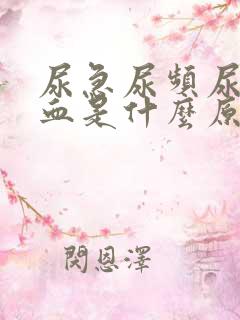 尿急尿頻尿
血是什麼原
閔恩澤